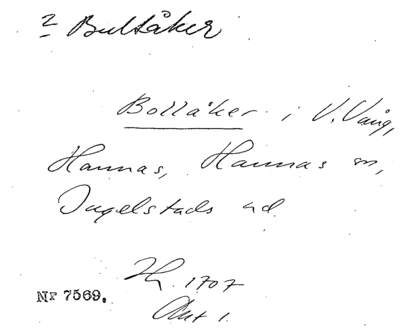 2 Bultåker
Bollåker i V. Vång,
Hannas, Hannas sn,
Ingelstads hd.
Lh. 1707
Akt 1.
Nr 7569.